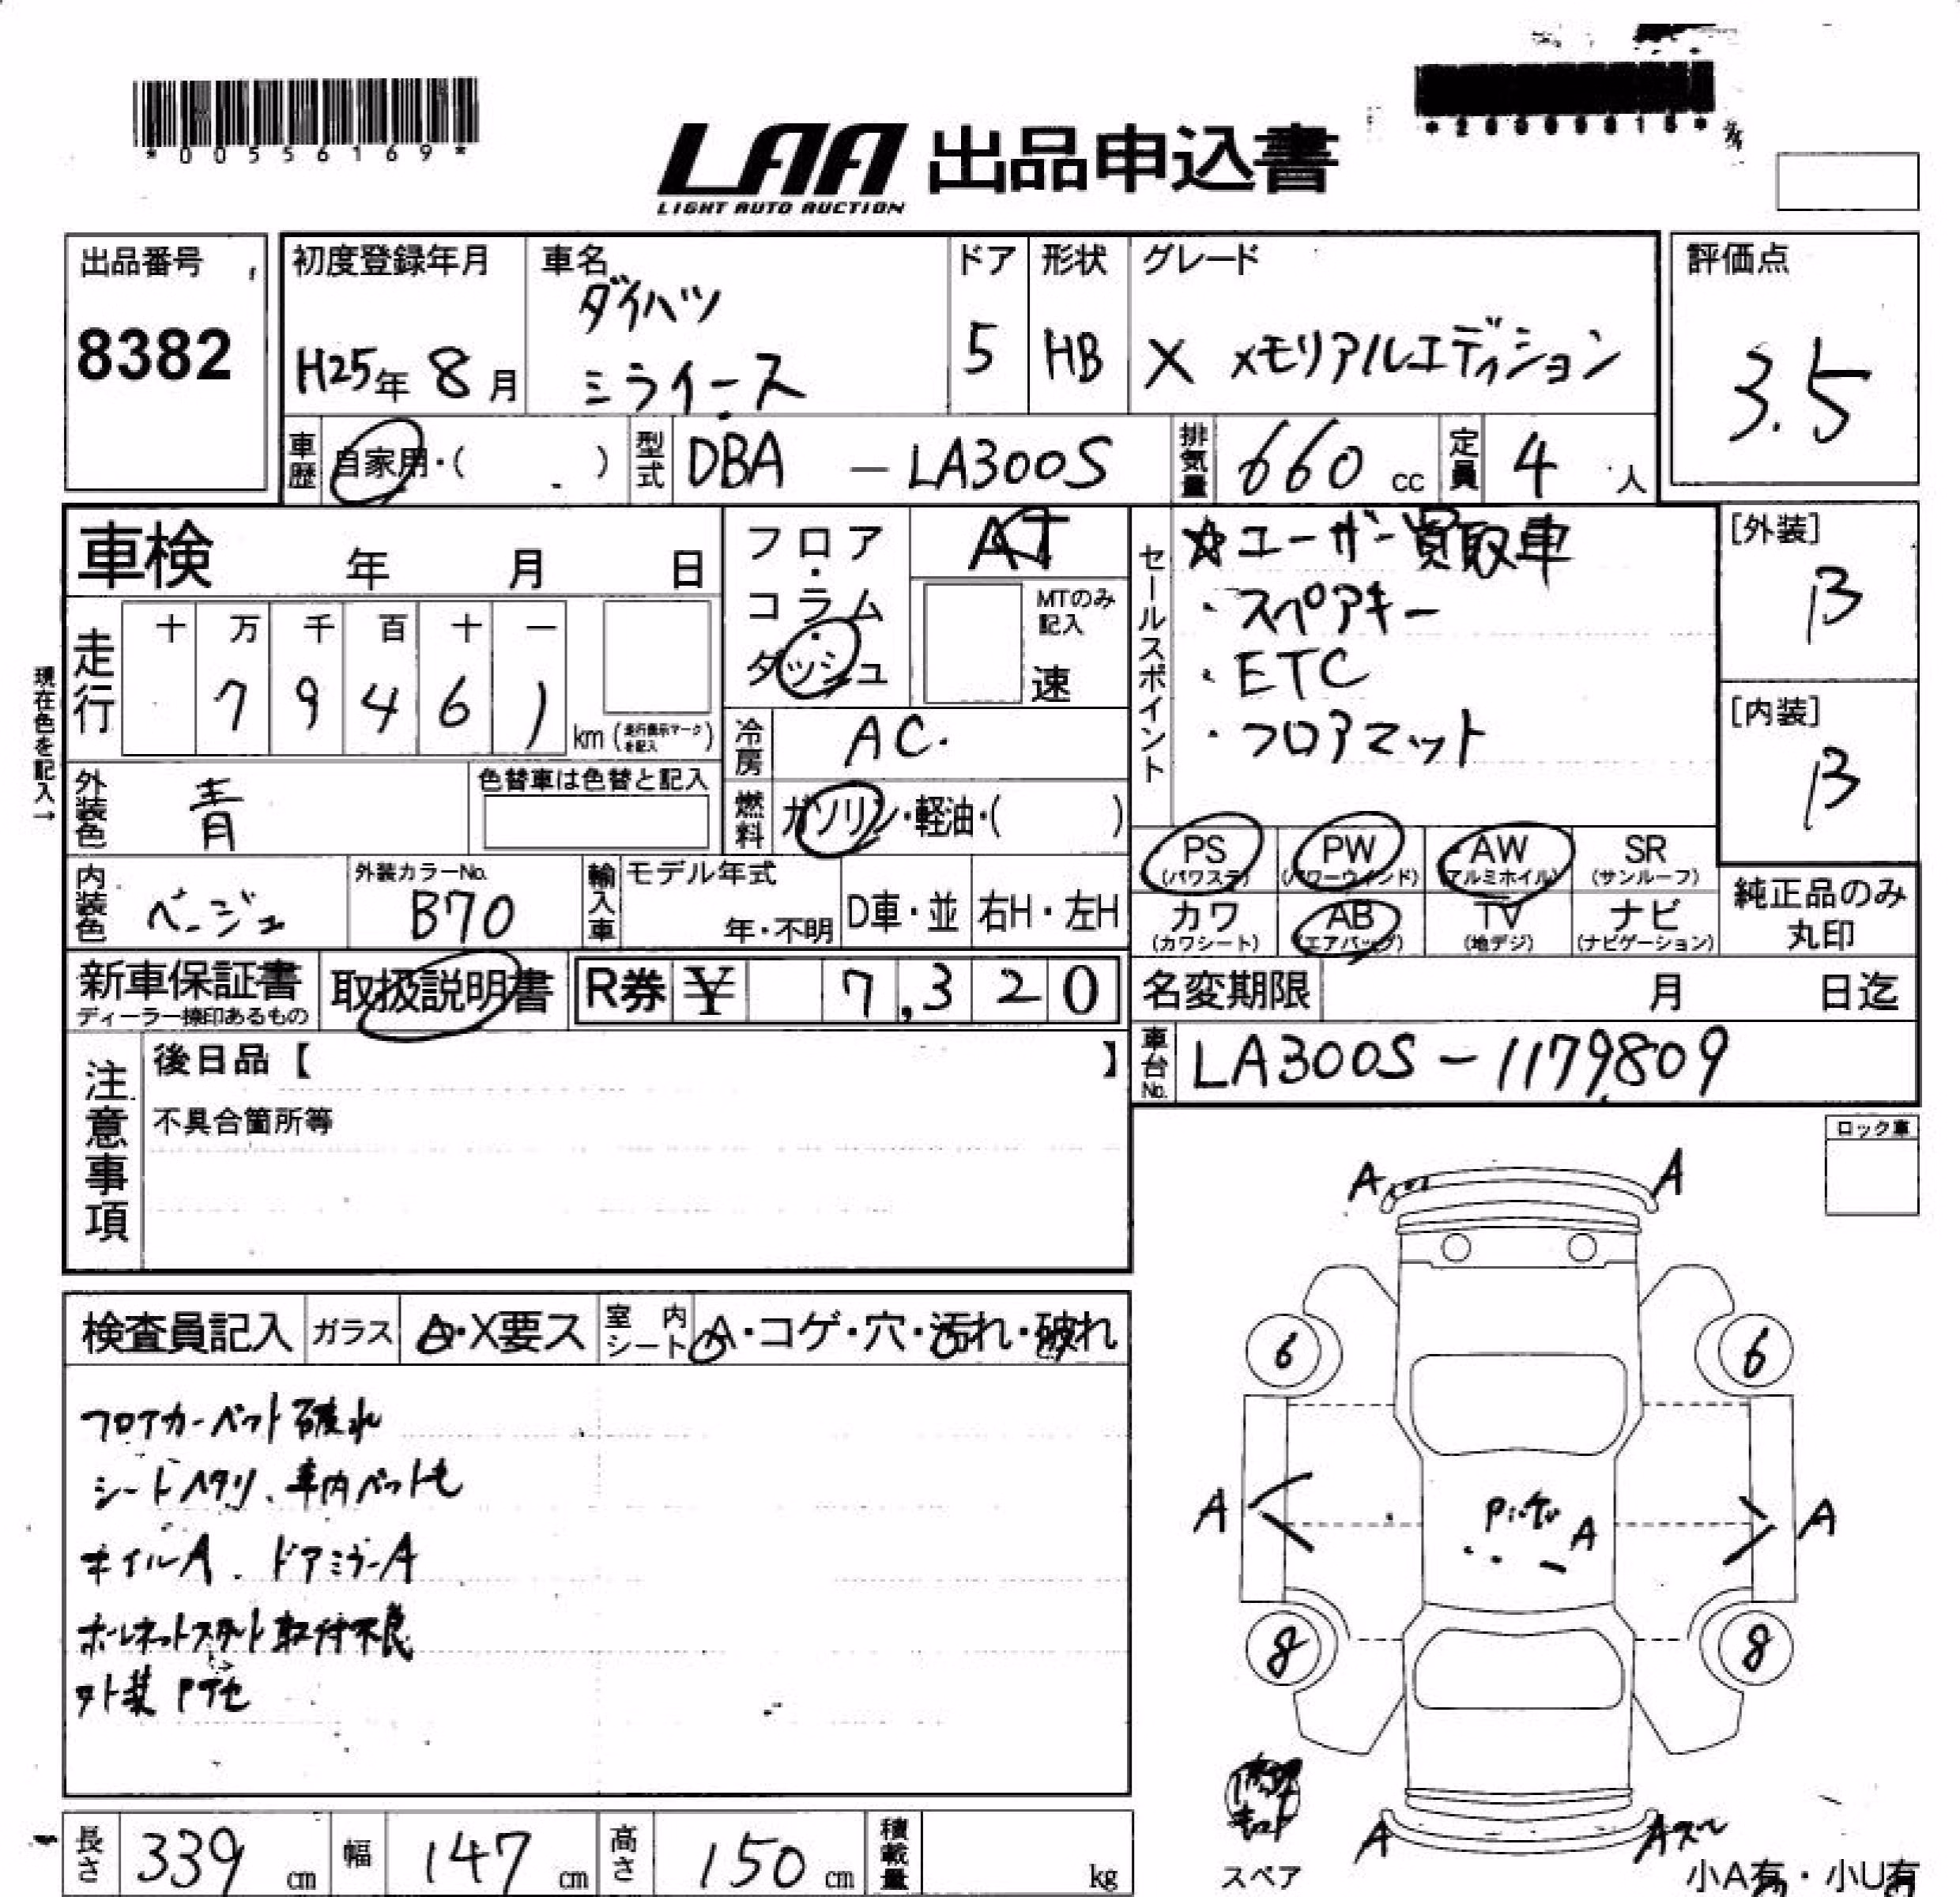 *00556169*
LAA 出品申込書
LIGHT AUTO AUCTION
出品番号
8382
初度登録年月
H25年 8月
車名
ダイハツ
ミライース
ドア
5
形状
HB
グレード
X メモリアルエディション
評価点
3.5
車歴
自家用・( )
型式
DBA - LA300S
排気量
660 cc
定員
4 人
車検 年 月 日
走行
十 万 千 百 十 一
7 9 4 6 1
km (走行表示マークを記入)
現在色を記入→
外装色
青
色替車は色替と記入
内装色
ベージュ
外装カラーNo.
B70
輸入車
モデル年式
年・不明
D車・並
右H・左H
フロア・コラム・ダッシュ
AT
MTのみ記入
速
冷房
AC.
燃料
ガソリン・軽油・( )
セールスポイント
☆ユーザー買取車
・スペアキー
・ETC
・フロアマット
[外装]
B
[内装]
B
PS (パワステ)
PW (パワーウインド)
AW (アルミホイル)
SR (サンルーフ)
カワ (カワシート)
AB (エアバッグ)
TV (地デジ)
ナビ (ナビゲーション)
純正品のみ
丸印
新車保証書
ディーラー捺印あるもの
取扱説明書
R券 ¥ 7,320
名変期限 月 日迄
車台No.
LA300S-1179809
注意事項
後日品【 】
不具合箇所等
ロック車
検査員記入
ガラス
A・X要ス
室内シート
A・コゲ・穴・汚れ・破れ
フロアカーペット破れ
シートヘタリ、車内ペット毛
ホイルA、ドアミラーA
ボンネットステー取付不良
外装
A
A
6
6
A
A
A
8
8
A
Aスレ
スペア
小A有・小U有
長さ 339 cm
幅 147 cm
高さ 150 cm
積載量 kg